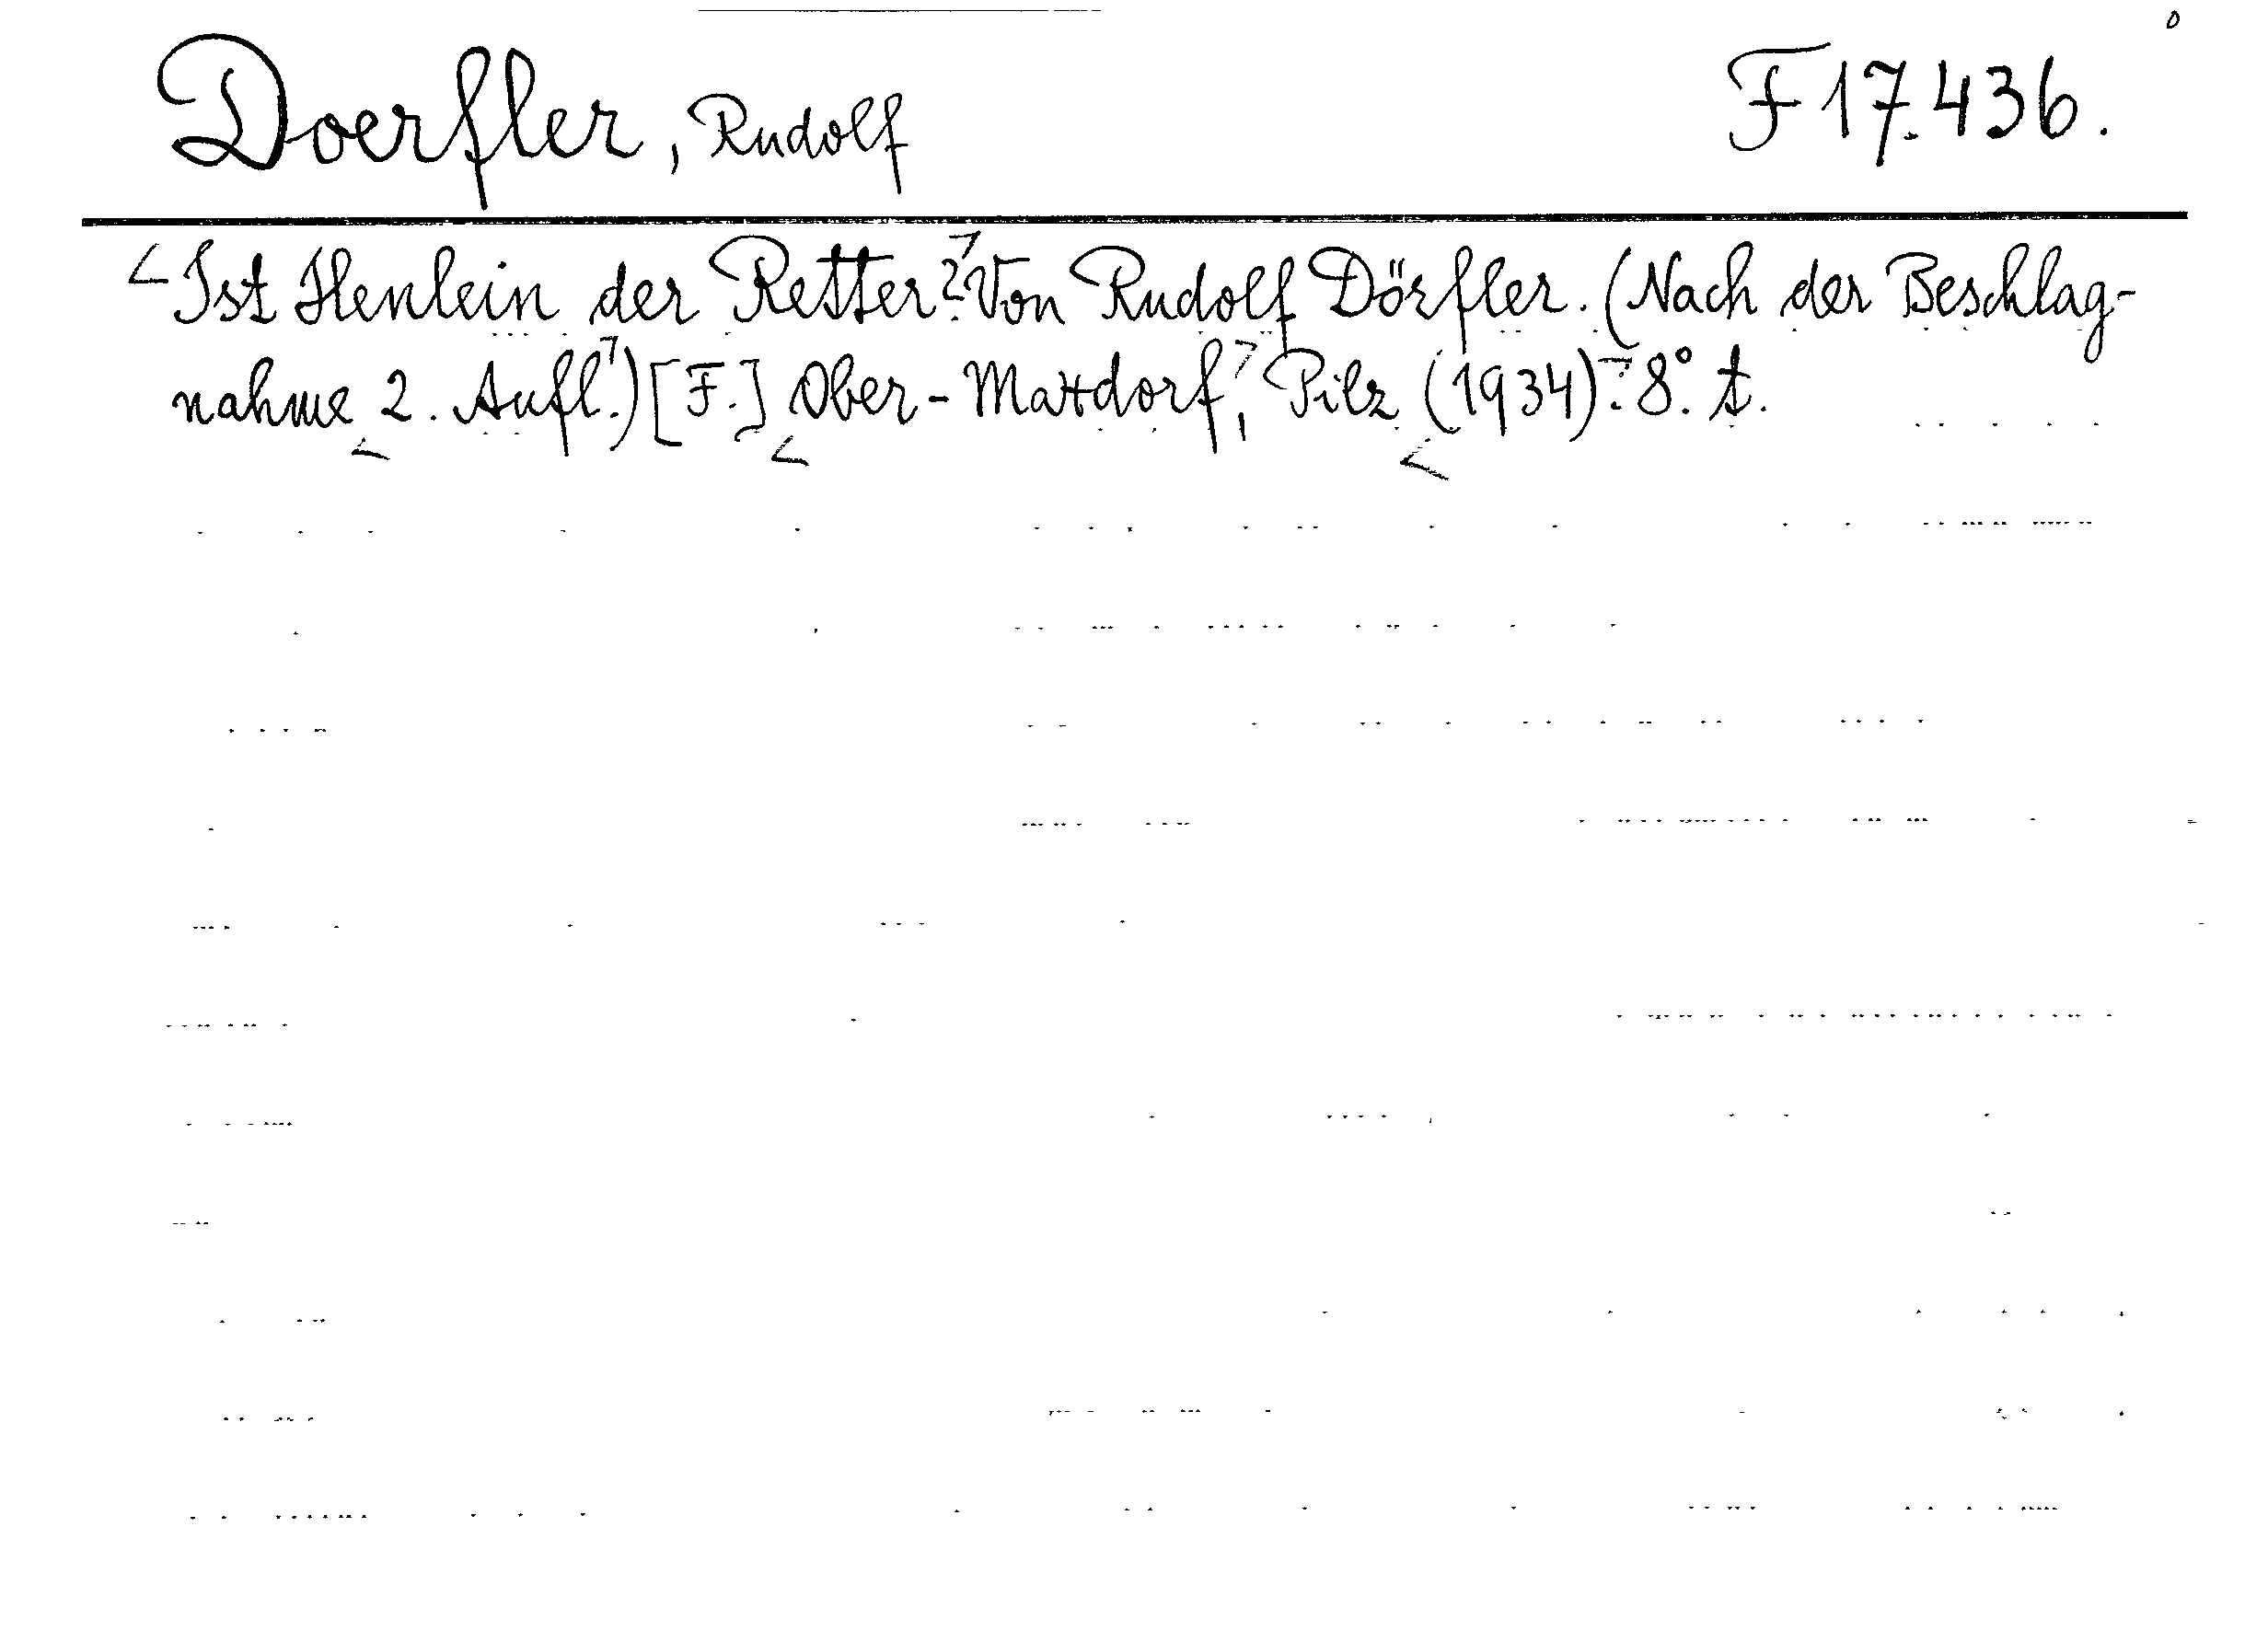 Doerfler, Rudolf F 17.436.
Ist Henlein der Retter? Von Rudolf Dörfler. (Nach der Beschlag-
nahme 2. Aufl.) [F.] Ober-Maxdorf, Pilz (1934). 8°. t.